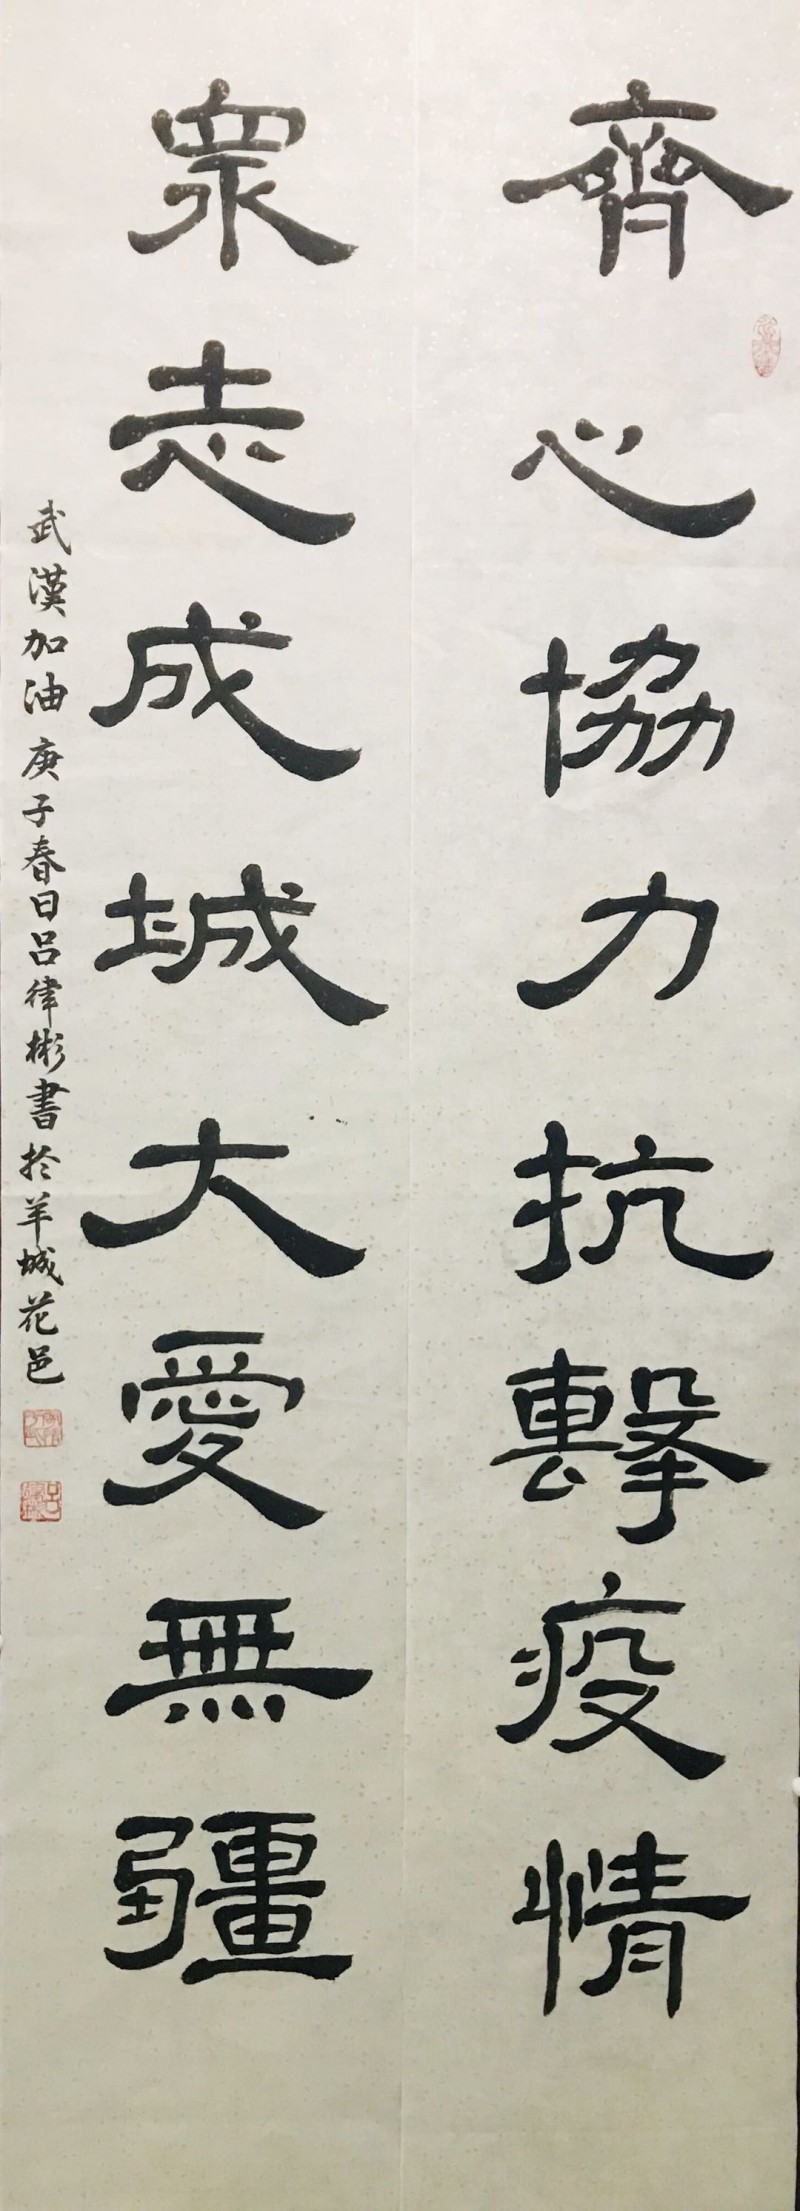 齊心協力抗擊疫情
眾志成城大愛無疆
武漢加油庚子春日呂律彬書於羊城花邑